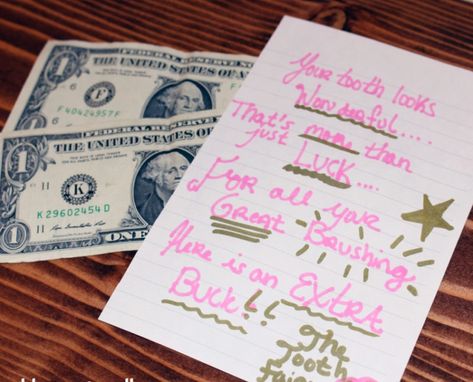 1
FEDERAL RESERVE
THE UNITED STATES OF A
F
F 40424957 F
FEDERAL RESERVE
1
THE UNITED STATES OF AM
H 11
K
K 29602454 D
ONE
Your tooth looks
Wonderful....
That's more than
just
Luck....
For all your
Great Brushing
Here is an EXTRA
Buck!!
The
Tooth
Fairy